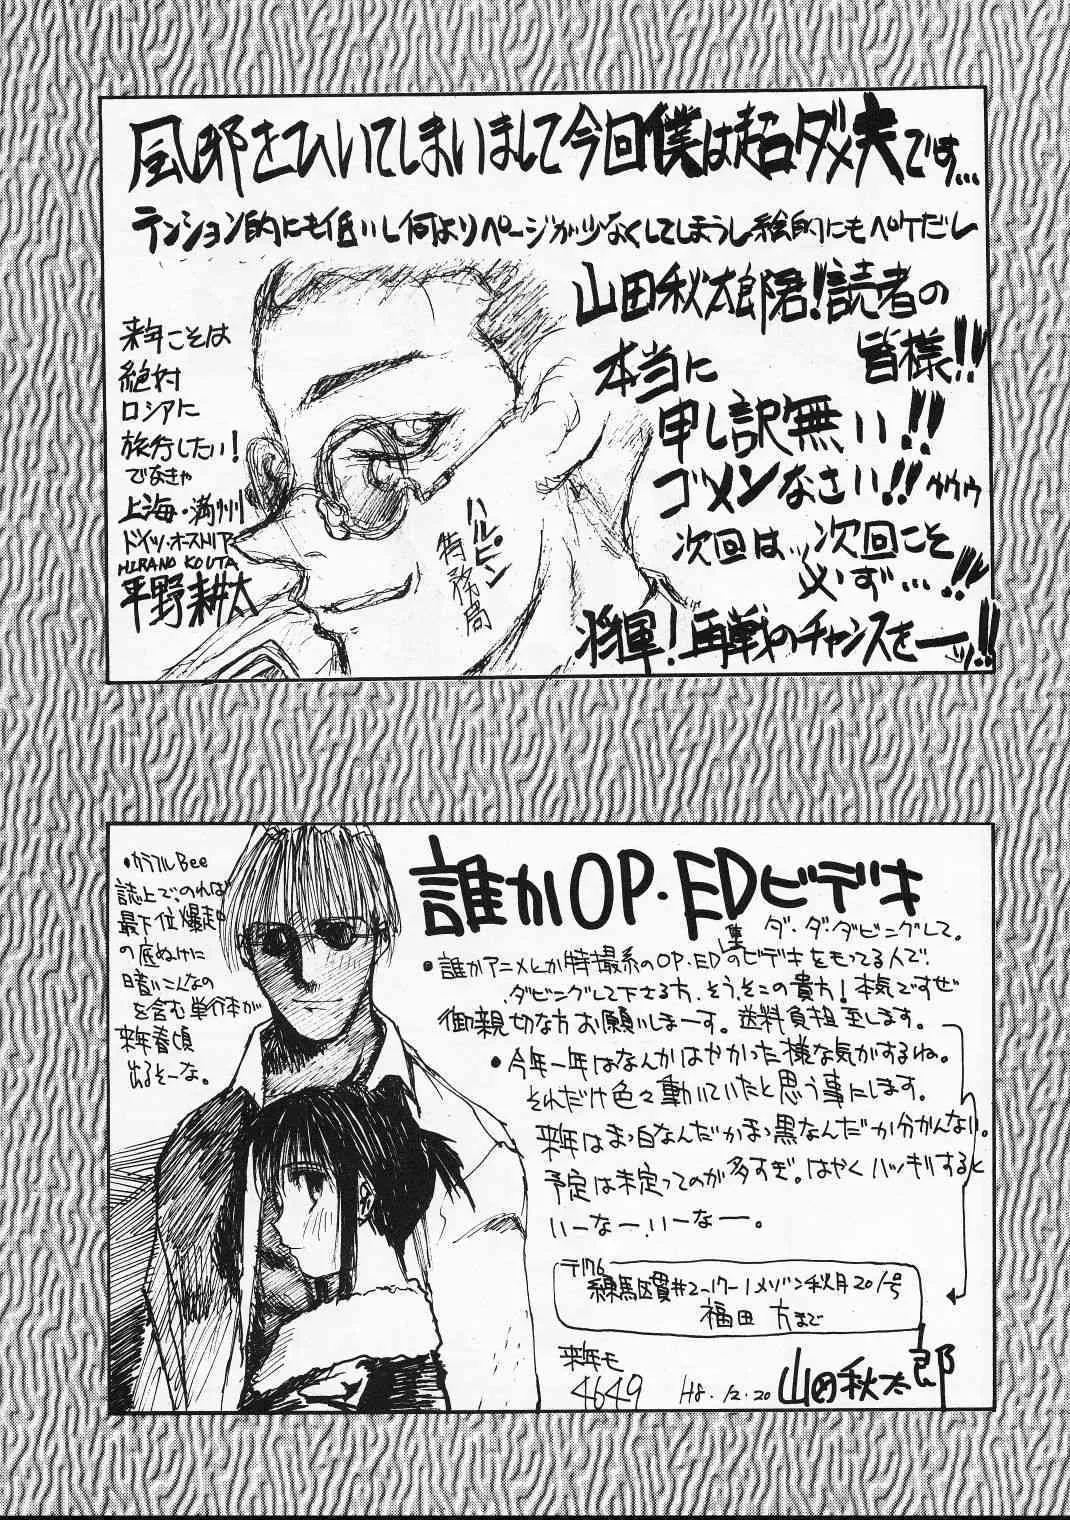 風邪をひいてしまいまして今回僕は超ダメ夫です…
テンション的にも低いし何よりページが少なくしてしまうし絵的にもペケだし
山田秋太郎君!読者の
皆様!!
本当に
申し訳無い!!
ゴメンなさい!!ゥゥゥ
次回は…次回こそ
必ず…!!
将軍!再戦のチャンスをーッ!!
来年こそは
絶対
ロシアに
旅行したい!
でなきゃ
上海・満州
ドイツ・オーストリア
HIRANO KOUTA
平野耕太
ハルピン
特務局
・カラフルBee
誌上でのれば
最下位爆走中
の底ぬけに
暗いこんなの
を含む単行本が
来年春頃
出るそーな。
誰かOP・EDビデオ
ダ・ダ・ダビングして。
・誰かアニメとか特撮系のOP・ED集のビデオをもってる人で、
ダビングして下さる方、そう、そこの貴方!本気ですぜ
御親切な方お願いしまーす。送料負担至します。
・今年一年はなんかはやかった様な気がするね。
それだけ色々動いていたと思う事にします。
来年はまっ白なんだかまっ黒なんだか分かんない。
予定は未定ってのが多すぎ。はやくハッキリすると
いーなー。いーなー。
〒176
練馬区貫井2-17-1メゾン秋月201号
福田方まで
来年も
4649
H8.12.20
山田秋太郎